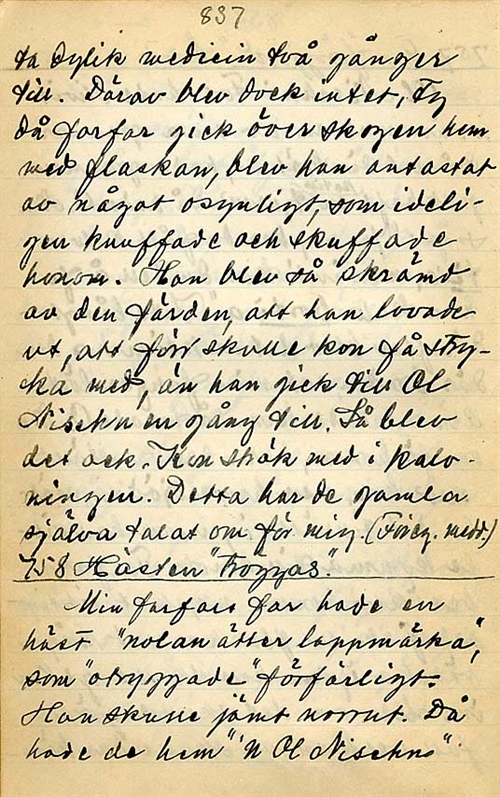 837
ta dylik medicin två gånger
till. Därav blev dock intet, Ty
då farfar gick över skogen hem
med flaskan, blev han antastat
av något osynligt, som ideli-
gen knuffade och skuffade
honom. Han blev så skrämd
av den färden, att han lovade
ut, att förr skulle kon få stry-
ka med, än han gick till Ol
Nischn en gång till. Så blev
det ock. Kon strök med i kalv-
ningen. Detta har de gamla
själva talat om för mig. (Föreg. medd.)
758 Hästen "tröggas."
Min farfars far hade en
häst "nolan åtter lappmärka",
som "otryggade" förfärligt.
Han skulle jämt norrut. Då
hade de hem "'n Ol Nischns"